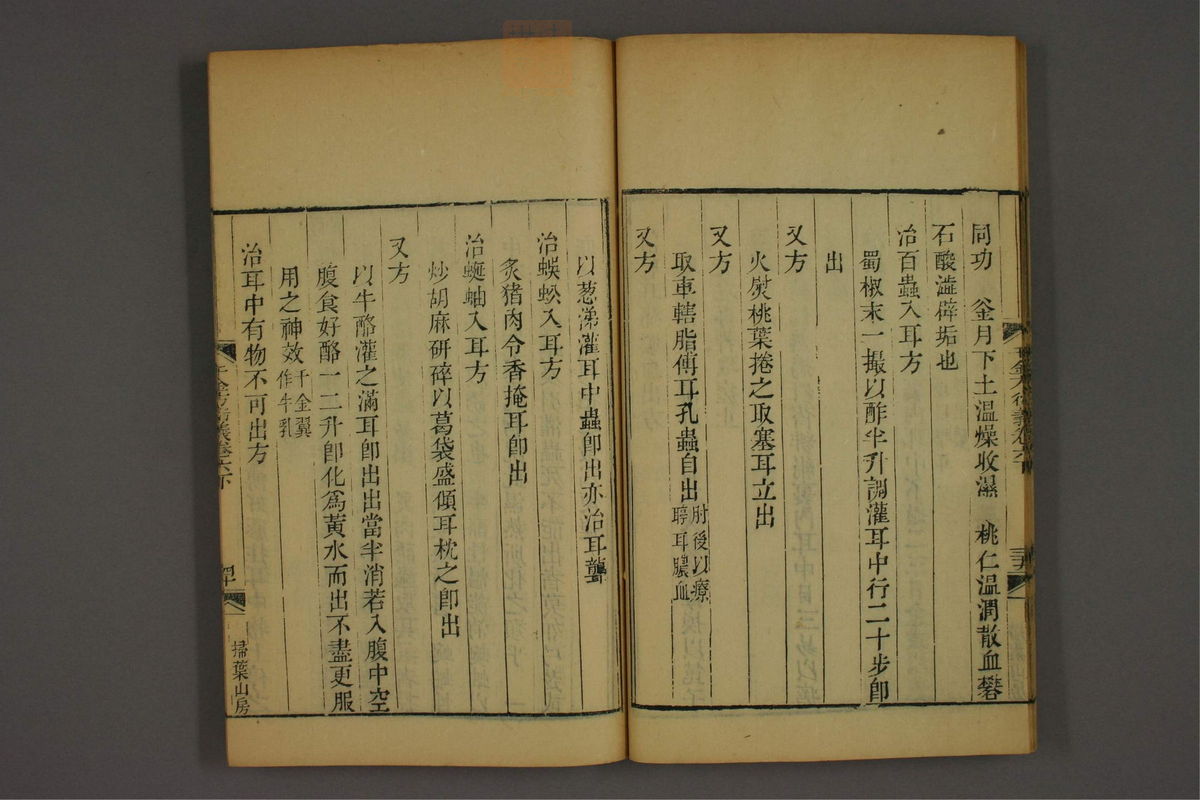 同功　釜月下土温燥收濕　桃仁温潤散血礬
石酸澁辟垢也
治百蟲入耳方
蜀椒末一撮以酢半升調灌耳中行二十步卽
出
又方
火熨桃葉捲之取塞耳立出
又方
取車轄脂傅耳孔蟲自出肘後以療聤耳膿血
又方
以葱涕灌耳中蟲卽出亦治耳聾
治蜈蚣入耳方
炙猪肉令香掩耳卽出
治蜒蚰入耳方
炒胡麻研碎以葛袋盛傾耳枕之卽出
又方
以牛酪灌之滿耳卽出出當半消若入腹中空
腹食好酪一二升卽化爲黃水而出不盡更服
用之神效千金翼作牛乳
治耳中有物不可出方
千金方衍義卷六下
掃葉山房